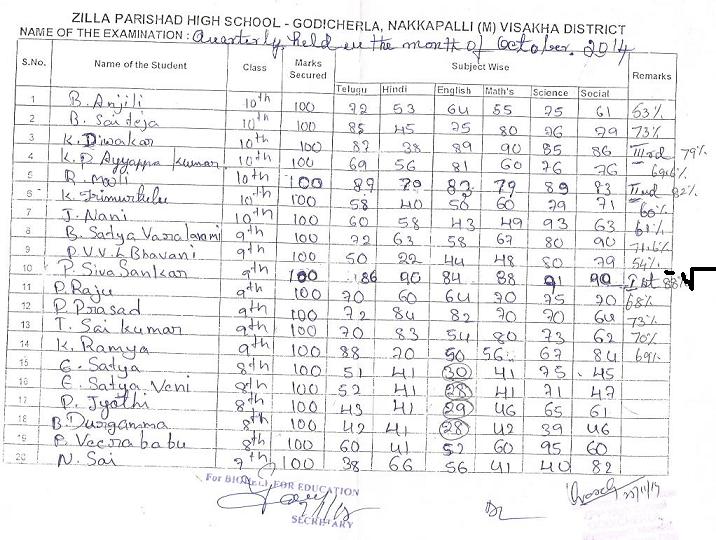 ZILLA PARISHAD HIGH SCHOOL - GODICHERLA, NAKKAPALLI (M) VISAKHA DISTRICT
NAME OF THE EXAMINATION : Quarterly, held in the month of October. 2014
S.No. Name of the Student Class Marks Secured Subject Wise Remarks
Telugu Hindi English Math's Science Social
1 B. Anjili 10th 100 72 53 64 55 75 61 63%
2 B. Sai teja 10th 100 85 45 75 80 76 79 73%
3 K. Diwakar 10th 100 87 38 89 90 85 86 IIIrd 79%
4 K. D Ayyappa kumar 10th 100 69 56 81 60 76 76 69.6%
5 R. Mooli 10th 100 87 79 82 79 89 83 IInd 82%
6 K. Trimurthulu 10th 100 58 40 50 60 79 71 60%
7 J. Nani 10th 100 60 58 43 49 93 63 61%
8 B. Satya 9th 100 72 63 58 67 80 90 71.6%
9 P.V.V.L Bhavani 9th 100 50 22 44 48 80 79 54%
10 P. Siva Sankar 9th 100 86 90 84 88 91 90 Ist 88%
11 P. Raju 9th 100 70 60 64 70 75 70 68%
12 P. Prasad 9th 100 72 84 82 70 70 64 73%
13 T. Sai kumar 9th 100 70 83 54 80 73 62 70%
14 K. Ramya 9th 100 88 70 50 56 67 84 69%
15 G. Satya 8th 100 51 41 30 41 75 45
16 E. Satya Veni 8th 100 52 41 28 41 71 47
17 P. Jyothi 8th 100 43 41 29 46 65 61
18 B. Durgamma 8th 100 42 41 28 42 39 46
19 P. Veera babu 8th 100 60 41 52 60 95 60
20 N. Sai 7th 100 38 66 56 41 40 82
For EDUCATION
SECRETARY